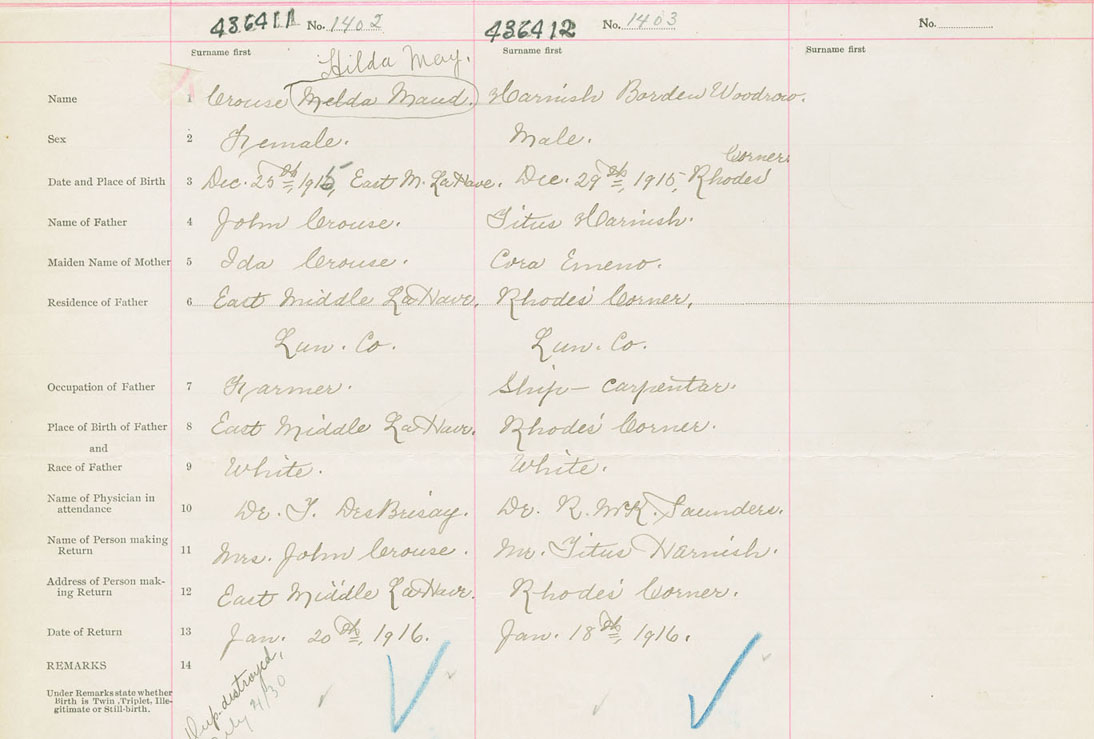 436411 No. 1402 436412 No. 1403 No.
Surname first Surname first Surname first
Hilda May.
Name 1 Crouse Melda Maud. Harnish Borden Woodrow.
Sex 2 Female. Male.
Corner.
Date and Place of Birth 3 Dec. 25th, 1915, East M. LaHave. Dec. 29th, 1915, Rhodes'
Name of Father 4 John Crouse. Titus Harnish.
Maiden Name of Mother 5 Ida Crouse. Cora Emeno.
Residence of Father 6 East Middle LaHave. Rhodes' Corner,
Lun. Co. Lun. Co.
Occupation of Father 7 Farmer. Ship-Carpentar.
Place of Birth of Father 8 East Middle LaHave. Rhodes' Corner.
and
Race of Father 9 White. White.
Name of Physician in
attendance 10 Dr. F. DesBrisay. Dr. R. McK. Saunders.
Name of Person making
Return 11 Mrs. John Crouse. Mr. Titus Harnish.
Address of Person mak-
ing Return 12 East Middle LaHave. Rhodes' Corner.
Date of Return 13 Jan. 20th, 1916. Jan. 18th, 1916.
REMARKS 14
Under Remarks state whether
Birth is Twin, Triplet, Ille-
gitimate or Still-birth.
Dup. destroyed,
July 4/30